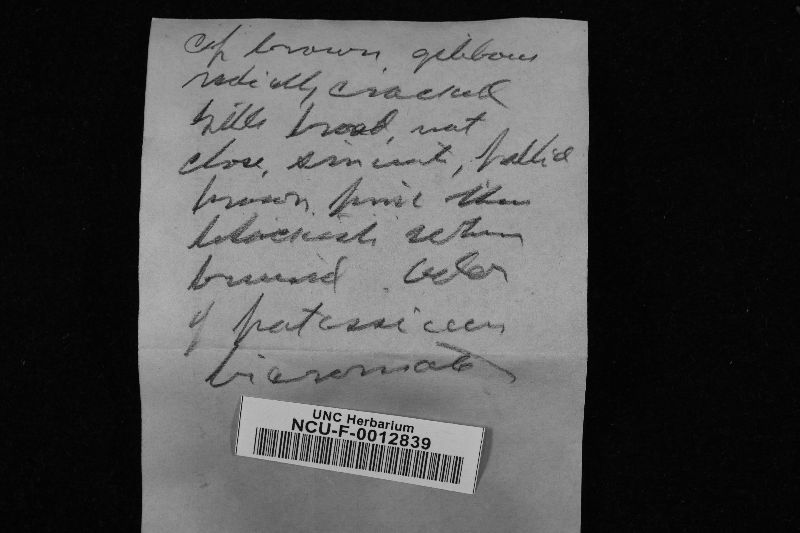 cap brown, gibbous
radially cracked
gills broad, not
close, sinuate, pallid
brown, pink then
blackish when
bruised. Color
of potassium
bicromate
UNC Herbarium
NCU-F-0012839